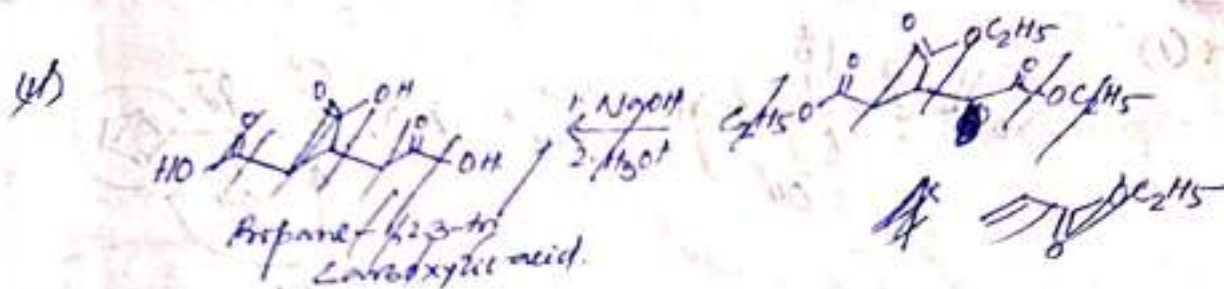 O
OC2H5
O
O
OH
O
O
1. NaOH
2. H3O+
C2H5O
O
OC2H5
HO
OH
Propane-1,2,3-tri
Carboxylic acid.
OC2H5
O